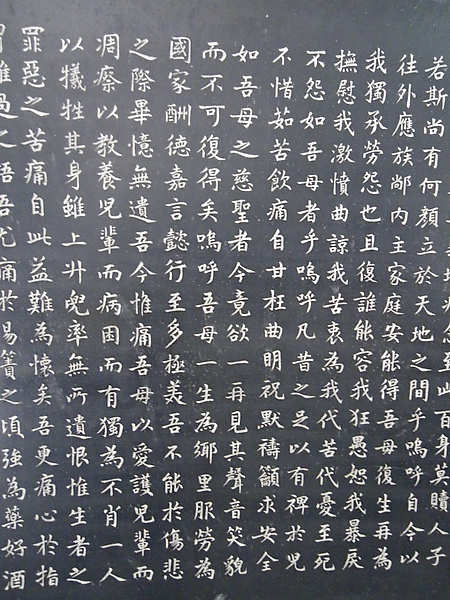 念至此百身莫贖人子
若斯尚有何顏立於天地之間乎嗚呼自今以
往外應族鄰內主家庭安能得吾母復生再為
我獨承勞怨也且復誰能容我狂愚恕我暴戾
撫慰我激憤曲諒我苦衷為我代苦代憂至死
不怨如吾母者乎嗚呼凡昔之足以有裨於兒
不惜茹苦飲痛自甘枉曲明祝默禱籲求安全
如吾母之慈聖者今竟欲一再見其聲音笑貌
而不可復得矣嗚呼吾母一生為鄉里服勞為
國家酬德嘉言懿行至多極美吾不能於傷悲
之際畢憶無遺吾今惟痛吾母以愛護兒輩而
凋瘵以教養兒輩而病困而有獨為不肖一人
以犧牲其身雖上升兜率無所遺恨惟生者之
罪惡之苦痛自此益難為懷矣吾更痛心於指
過之語吾尤痛於易簀之頃強為藥好酒